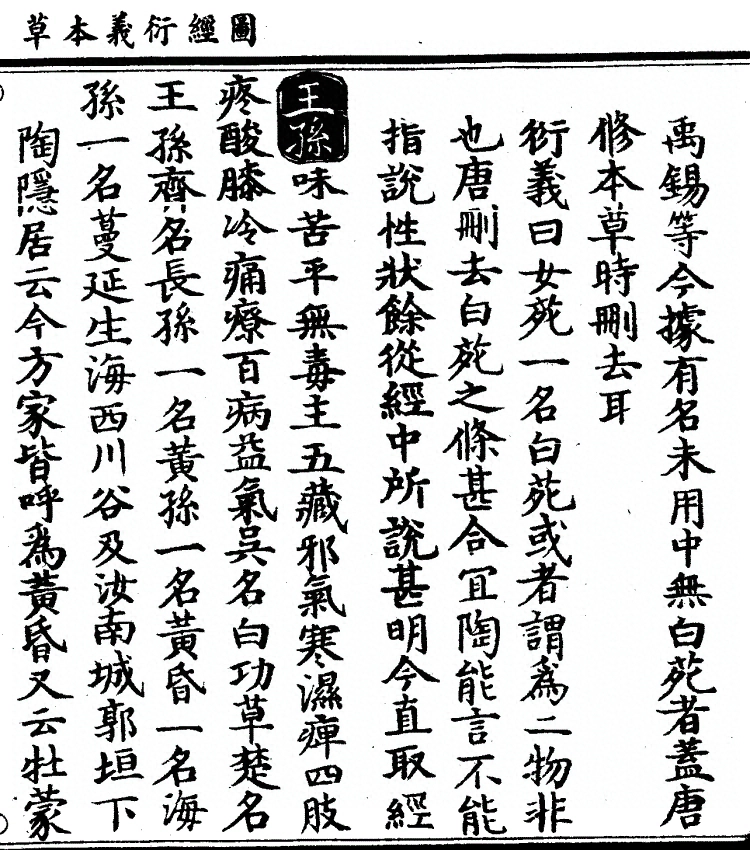 圖經衍義本草
禹錫等今據有名未用中無白菀者蓋唐
修本草時刪去耳
衍義曰女菀一名白菀或者謂為二物非
也唐刪去白菀之條甚合宜陶能言不能
指說性狀餘從經中所說甚明今直取經
王孫味苦平無毒主五藏邪氣寒濕痺四肢
疼酸膝冷痛療百病益氣吳名白功草楚名
王孫齊名長孫一名黃孫一名黃昏一名海
孫一名蔓延生海西川谷及汝南城郭垣下
陶隱居云今方家皆呼為黃昏又云牡蒙